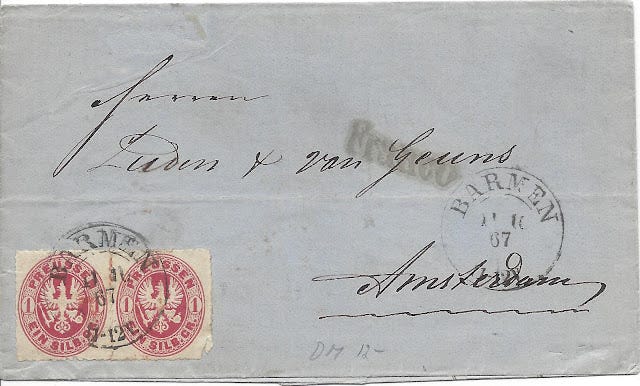 Herren
Luden & van Geuns
Franco
BARMEN
67
Amsterdam
BARMEN
67
PREUSSEN
1 1
EIN SILB.GR.
PREUSSEN
1 1
EIN SILB.GR.
DM 12-